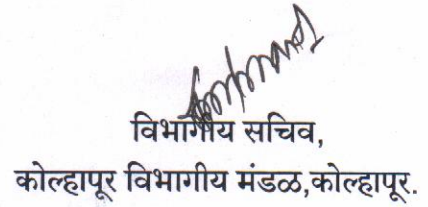 विभागीय सचिव,
कोल्हापूर विभागीय मंडळ,कोल्हापूर.